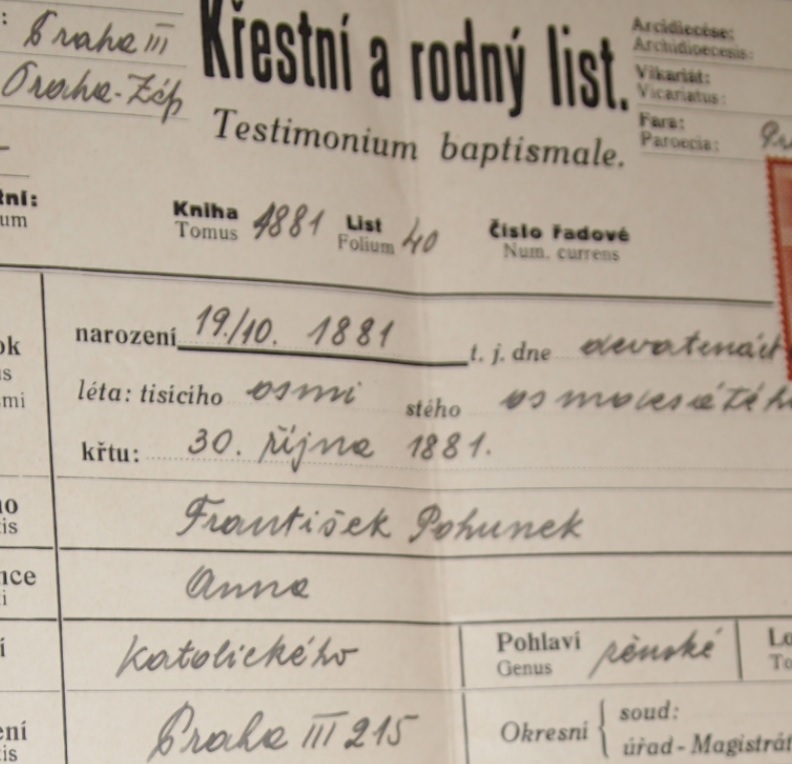 : Praha III
Praha-Zěp
Křestní a rodný list.
Testimonium baptismale.
Arcidiecése:
Archidioecesis:
Vikariát:
Vicariatus:
Fara:
Paroecia:
tní:
um
Kniha 1881 List 40 Číslo řadové
Tomus Folium Num. currens
narození 19./10. 1881 t. j. dne devatenáct
ok
us
smi
léta: tisícího osmi stého osmdesátého
křtu: 30. října 1881.
ho
tis
František Pohunek
nce
ti
Anna
í
katolického
Pohlaví ženské
Genus
Lo
To
ení
tis
Praha III 215
Okresní soud:
úřad - Magistrát